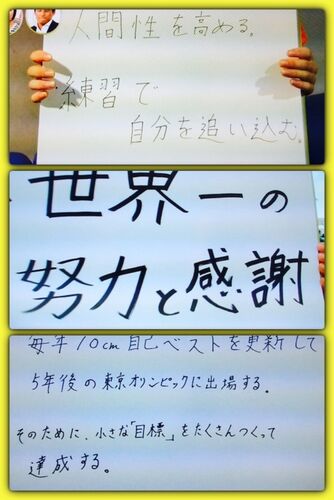 人間性を高める。
練習で
自分を追い込む。
世界一の
努力と感謝
毎年10cm自己ベストを更新して
5年後の東京オリンピックに出場する。
そのために、小さな「目標」をたくさんつくって
達成する。